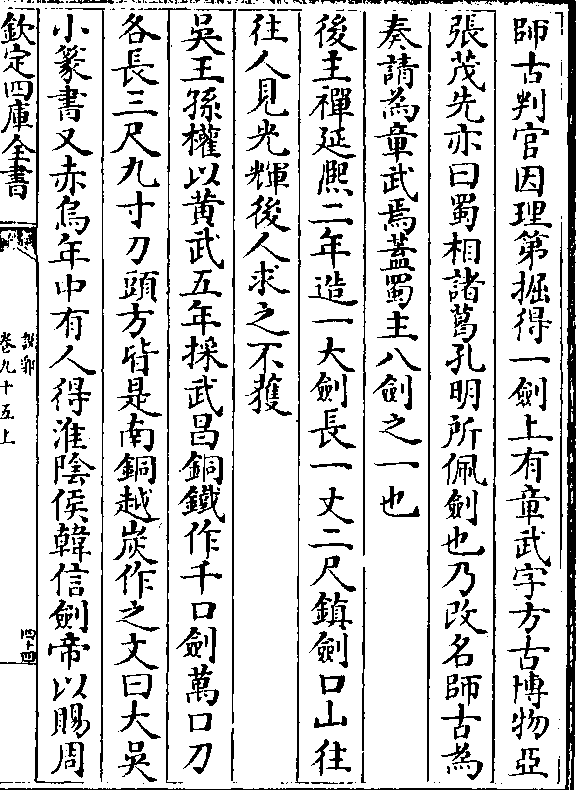 師古判官因理第掘得一劍上有章武字方古博物亞
張茂先亦曰蜀相諸葛孔明所佩劍也乃改名師古為
奏請為章武焉蓋蜀主八劍之一也
後主禪延熈二年造一大劍長一丈二尺鎮劍口山往
往人見光輝後人求之不獲
吳王孫權以黄武五年採武昌銅鐵作千口劍萬口刀
各長三尺九寸刀頭方皆是南銅越炭作之文曰大吳
小篆書又赤烏年中有人得淮陰侯韓信劍帝以賜周
欽定四庫全書
說郛
卷九十五上
四十四